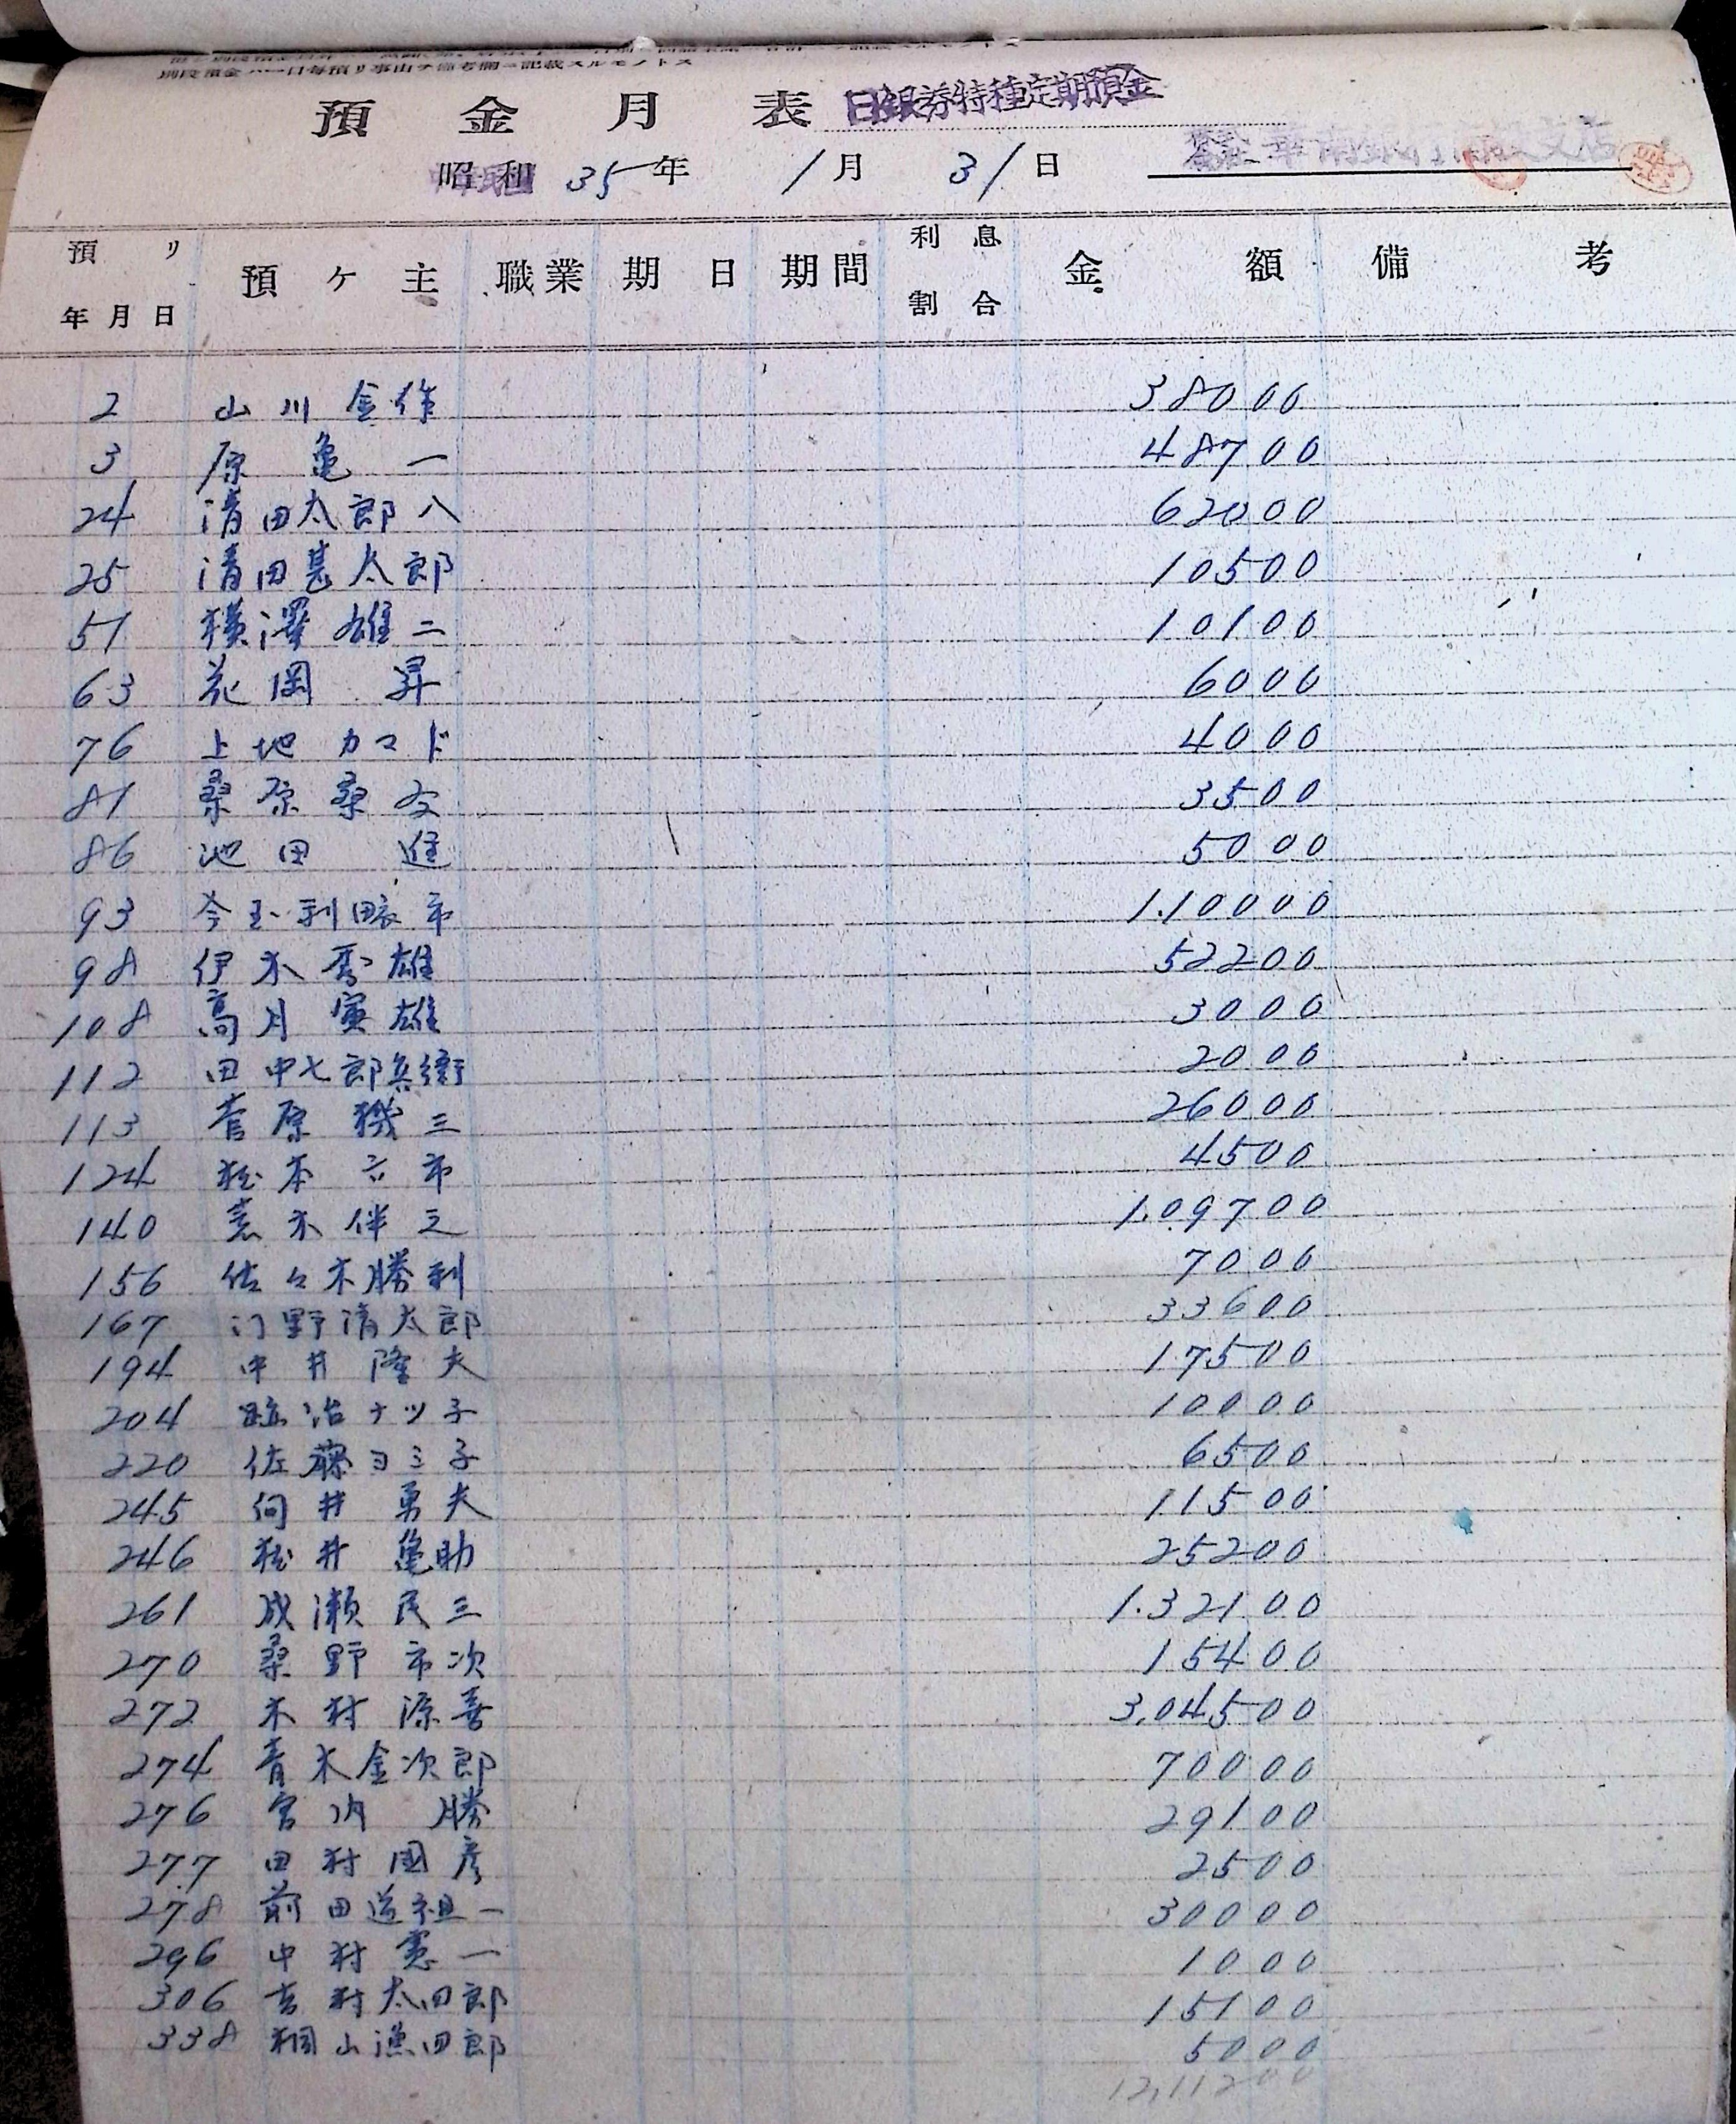 預金月表 日銀券特種定期預金
昭和 35年 1月 31日 華南銀行 支店
預リ年月日 預ケ主 職業 期日 期間 利息割合 金額 備考
2 山川金作 38000
3 原亀一 48700
24 清田太郎八 62000
25 清田甚太郎 10500
51 横澤雄二 10100
63 花岡昇 6000
76 上地カマド 4000
81 桑原桑友 3500
86 池田進 5000
93 今 利 市 1.10000
98 伊木秀雄 52200
108 高月寅雄 3000
112 田中七郎兵衛 2000
113 菅原機三 26000
124 松本六市 4500
140 木伴之 1.09700
156 佐々木勝利 7000
167 门野清太郎 33600
194 中井隆夫 17500
204 治ナツ子 10000
220 佐藤ヨミ子 6500
245 向井勇夫 11500
246 松井亀助 25200
261 成瀬民三 1.32100
270 桑野市次 15400
272 木村源喜 3,04500
274 青木金次郎 70000
276 宮内勝 29100
277 田村国彦 2500
278 前田道祖一 30000
296 中村憲一 1000
306 吉村太四郎 15100
338 桐山漁四郎 5000
12,11200